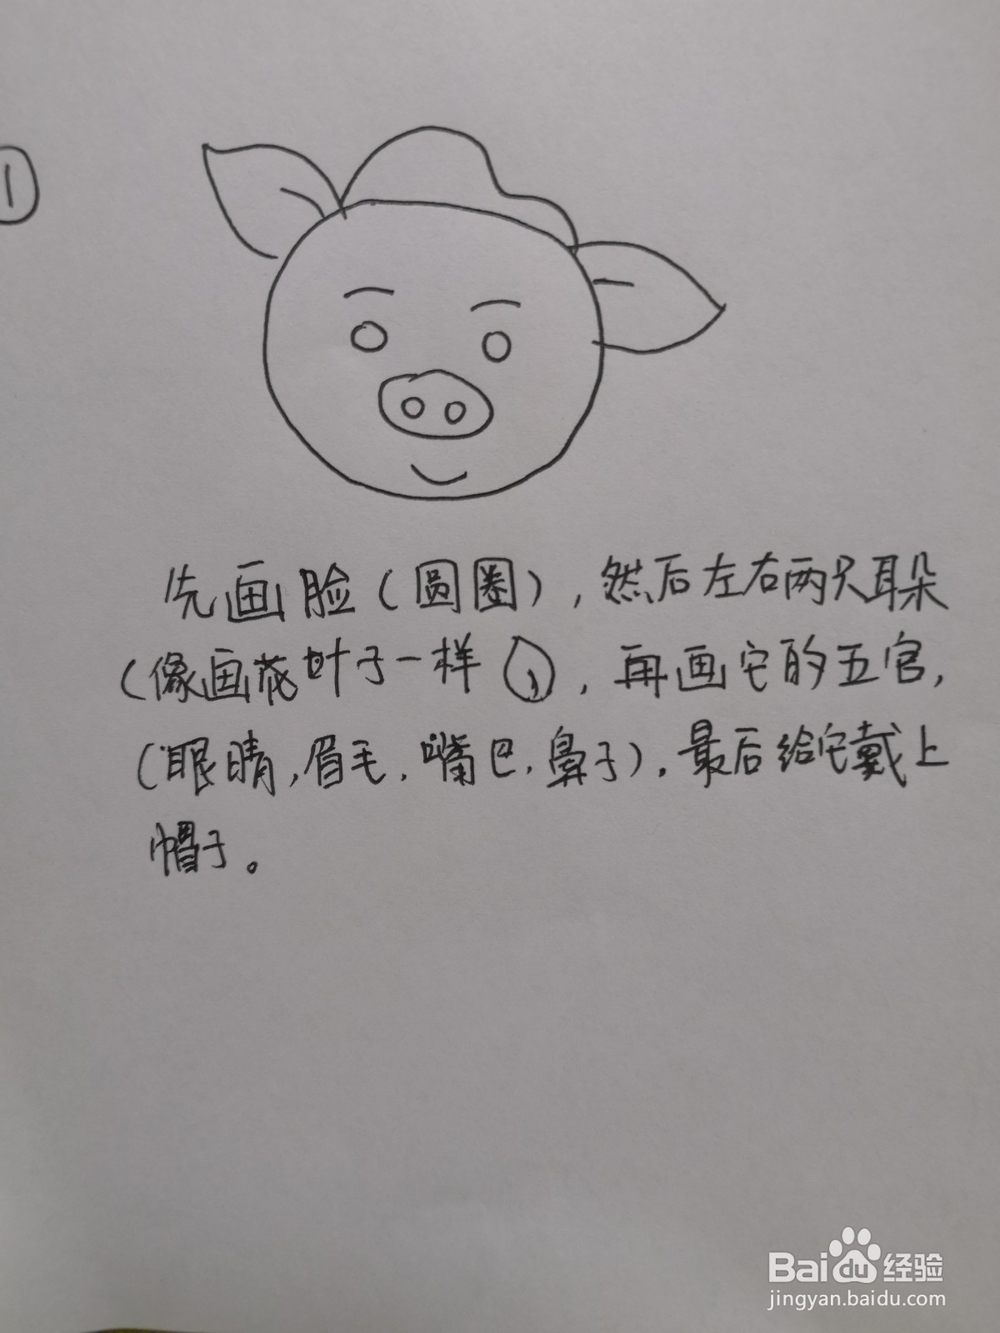 ①
先画脸(圆圈),然后左右两只耳朵
(像画花叶子一样 ),再画它的五官,
(眼睛,眉毛,嘴巴,鼻子).最后给它戴上
帽子。
Baidu经验
jingyan.baidu.com